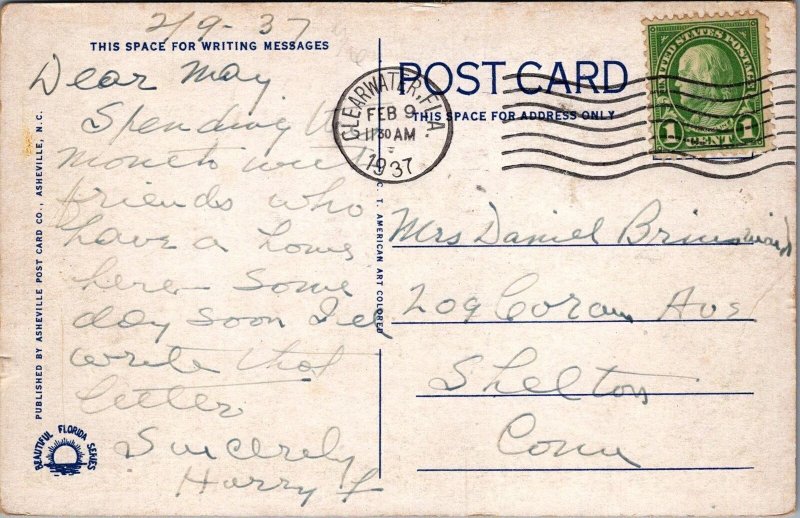 2/9-37
THIS SPACE FOR WRITING MESSAGES
Dear May
Spending the
month with
friends who
have a home
here - Some
day soon I'll
write that
letter
Sincerely
Harry
PUBLISHED BY ASHEVILLE POST CARD CO., ASHEVILLE, N.C.
BEAUTIFUL FLORIDA SERIES
C. T. AMERICAN ART COLORED
POST CARD
THIS SPACE FOR ADDRESS ONLY
CLEARWATER, FLA.
FEB 9
11 30 AM
1937
UNITED STATES POSTAGE
1 CENT 1
Mrs Daniel
209 Coram Ave
Shelton
Conn